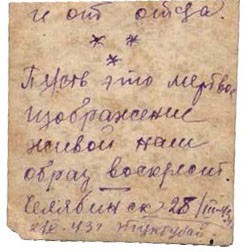 и от отца.
* *
*
Пусть это мертвое
изображение
живой наш
образ воскресит.
Челябинск 28/III-43г